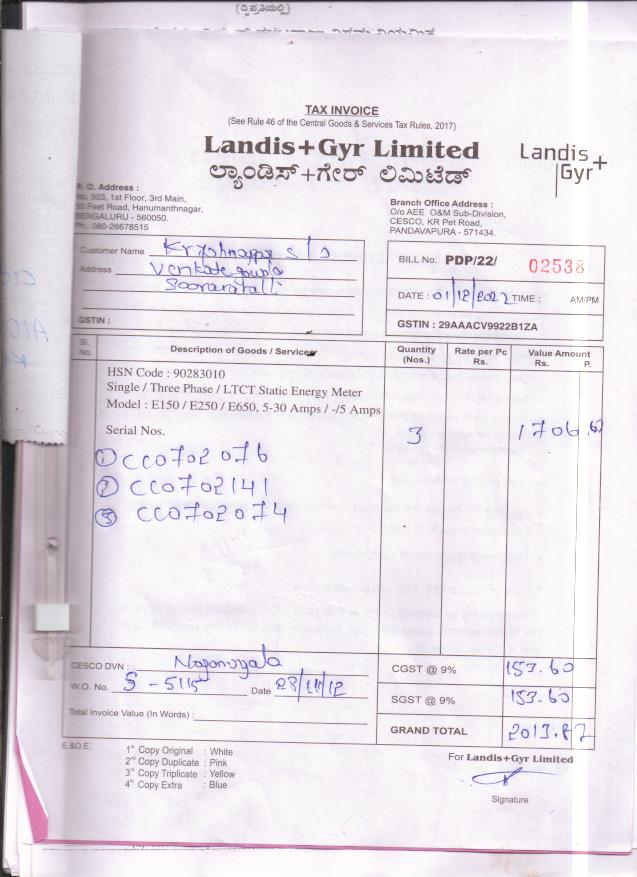 (ದ್ವಿಪ್ರತಿಯಲ್ಲಿ)
TAX INVOICE
(See Rule 46 of the Central Goods & Services Tax Rules, 2017)
Landis+Gyr Limited
ಲ್ಯಾಂಡಿಸ್+ಗೇರ್ ಲಿಮಿಟೆಡ್
Landis+
Gyr
R. O. Address :
No. 503, 1st Floor, 3rd Main,
Feet Road, Hanumanthnagar,
BENGALURU - 560050.
Ph.: 080-26678515
Branch Office Address :
O/o AEE O&M Sub-Division,
CESCO, KR Pet Road,
PANDAVAPURA - 571434.
Customer Name Krishnappa s/o
Address Venkategowda
GSTIN :
BILL No. PDP/22/ 02538
DATE : 01/12/2022 TIME : AM/PM
GSTIN : 29AAACV9922B1ZA
Sl. No. Description of Goods / Services Quantity (Nos.) Rate per Pc Rs. Value Amount Rs. P.
HSN Code : 90283010
Single / Three Phase / LTCT Static Energy Meter
Model : E150 / E250 / E650, 5-30 Amps / -/5 Amps
Serial Nos. 3 1706.67
① CC0702076
② CC0702141
③ CC0702074
CESCO DVN : Nagamangala
W.O. No. S-5115 Date 28/11/12
Total Invoice Value (In Words) :
CGST @ 9% 153.60
SGST @ 9% 153.60
GRAND TOTAL 2013.87
E.&O.E.
1st Copy Original : White
2nd Copy Duplicate : Pink
3rd Copy Triplicate : Yellow
4th Copy Extra : Blue
For Landis+Gyr Limited
Signature